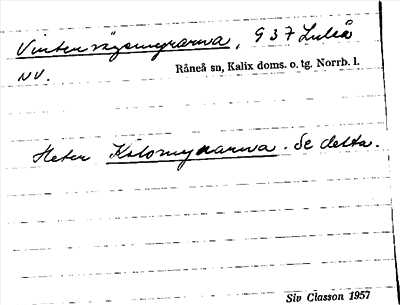 Vintervägsmyrarna, 937 Luleå
NV.
Råneå sn, Kalix doms. o. tg. Norrb. l.
Heter Kolomyrarna. Se detta.
Siv Classon 1957